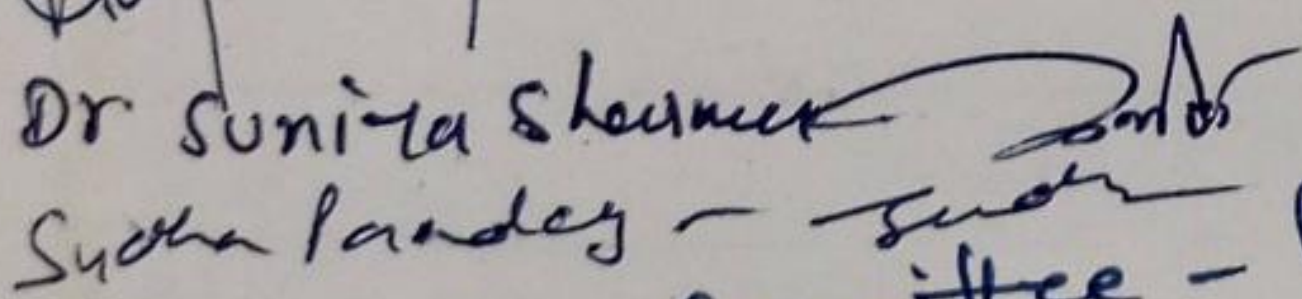 Dr Sunita Sharma
Sudha Pandey - Sudh
ittee -